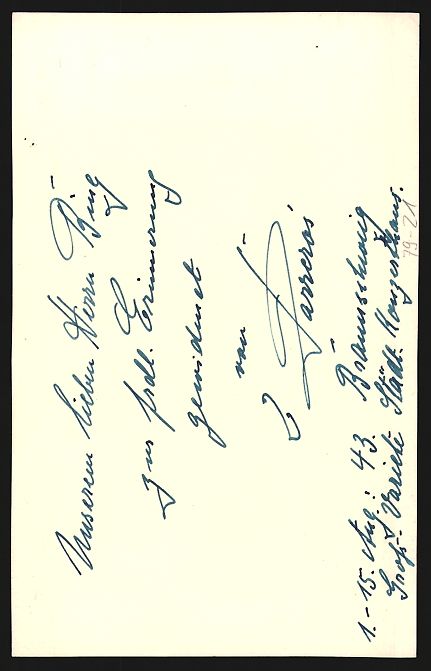 Unserem lieben Herrn Bing
zur frdl. Erinnerung
gewidmet
von
2 Larreros
1.-15. Aug. 43. Braunschweig
Groß-Varieté Städt. Konzerthaus.
79-21